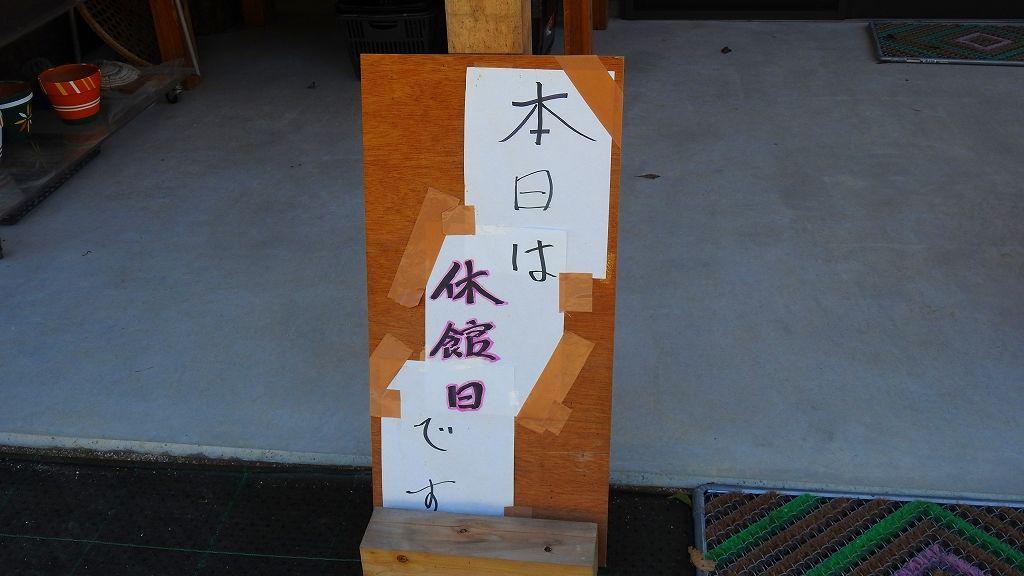 本日は
休館日
です